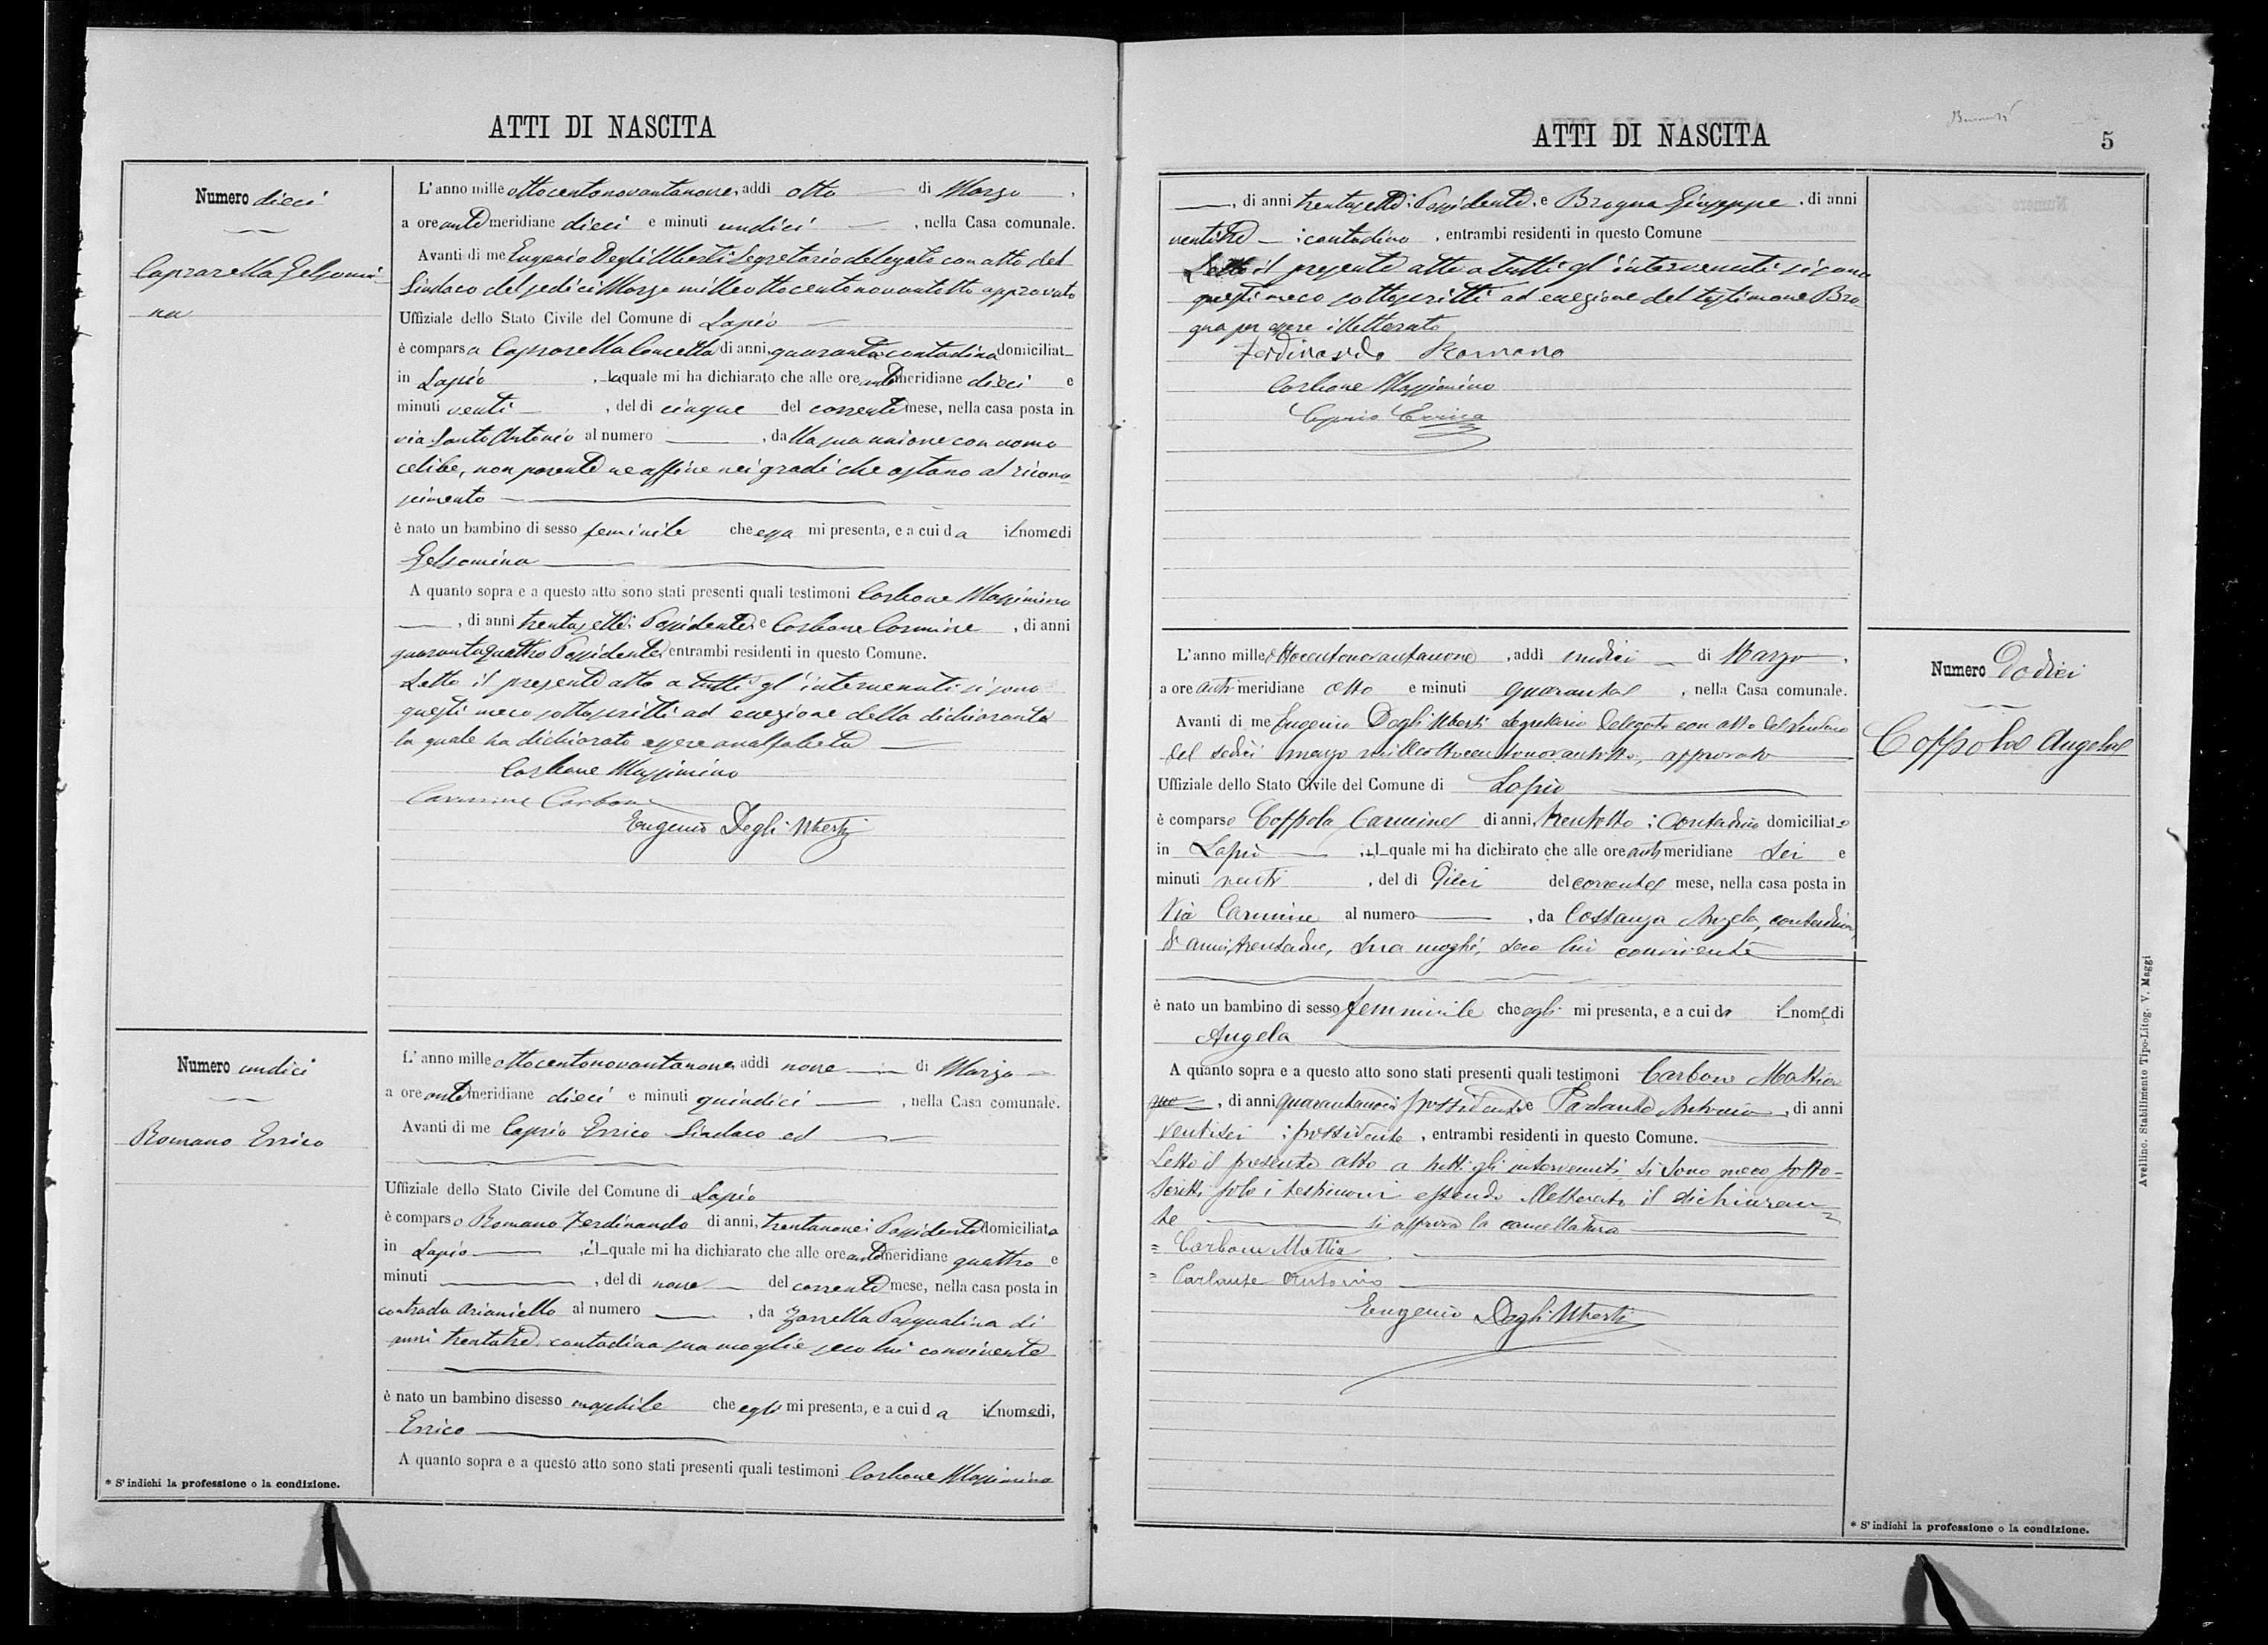 ATTI DI NASCITA
Numero dieci
Caprarella Gelsomi-
na
L'anno mille ottocentonovantanove, addì otto di Marzo,
a ore antemeridiane dieci e minuti undici, nella Casa comunale.
Avanti di me Eugenio Degli Uberti Segretario delegato con atto del
Sindaco del sedici Marzo milleottocentonovantotto approvato
Uffiziale dello Stato Civile del Comune di Lapio
è comparsa Caprarella Concetta di anni, quaranta contadina domiciliat_
in Lapio, la quale mi ha dichiarato che alle ore antemeridiane dieci e
minuti venti, del dì cinque del corrente mese, nella casa posta in
via Santo Antonio al numero, dalla sua unione con uomo
celibe, non parente ne affine nei gradi che ostano al ricono-
scimento
è nato un bambino di sesso feminile che essa mi presenta, e a cui da il nome di
Gelsomina
A quanto sopra e a questo atto sono stati presenti quali testimoni Carbone Massimino
, di anni trentasette: Possidente, e Carbone Carmine, di anni
quarantaquattro Possidente, entrambi residenti in questo Comune.
Letto il presente atto a tutti gl'intervenuti si sono
questi meco sottoscritti ad eccezione della dichiarante
la quale ha dichiarato essere analfabeta
Carbone Massimino
Carmine Carbone
Eugenio Degli Uberti
Numero undici
Romano Errico
L'anno mille ottocentonovantanove, addì nove di Marzo
a ore antemeridiane dieci e minuti quindici, nella Casa comunale.
Avanti di me Caprio Errico Sindaco ed
Uffiziale dello Stato Civile del Comune di Lapio
è comparso Romano Ferdinando di anni, trentanove: Possidente domiciliato
in Lapio, il quale mi ha dichiarato che alle ore antemeridiane quattro e
minuti, del dì nove del corrente mese, nella casa posta in
contrada Arianiello al numero, da Zarrella Pasqualina di
anni trentatre, contadina sua moglie seco lui convivente
è nato un bambino di sesso maschile che egli mi presenta, e a cui da il nome di,
Errico
A quanto sopra e a questo atto sono stati presenti quali testimoni Carbone Massimino
* S'indichi la professione o la condizione.
ATTI DI NASCITA
5
, di anni trentasette: Possidente, e Brogna Giuseppe, di anni
ventitre: contadino, entrambi residenti in questo Comune
Letto il presente atto a tutti gl'intervenuti si sono
questi meco sottoscritti ad eccezione del testimone Bro-
gna per essere illetterato
Ferdinando Romano
Carbone Massimino
Caprio Errico
Numero Dodici
Coppola Angela
L'anno mille ottocentonovantanove, addì undici di Marzo,
a ore antimeridiane otto e minuti quaranta, nella Casa comunale.
Avanti di me Eugenio Degli Uberti Segretario Delegato con atto del Sindaco
del sedici marzo milleottocentonovantotto, approvato
Uffiziale dello Stato Civile del Comune di Lapio
è comparso Coppola Carmine di anni, trentotto: Contadino domiciliato
in Lapio, il quale mi ha dichirato che alle ore antimeridiane sei e
minuti venti, del dì dieci del corrente mese, nella casa posta in
Via Carmine al numero, da Costanza Angela, contadina,
di anni, trentadue, sua moglie, seco lui convivente
è nato un bambino di sesso femminile che egli mi presenta, e a cui da il nome di
Angela
A quanto sopra e a questo atto sono stati presenti quali testimoni Carbone Mattia
, di anni quarantanove: possidente e Parlante Antonio, di anni
ventisei: possidente, entrambi residenti in questo Comune.
Letto il presente atto a tutti gli intervenuti si sono meco sotto-
scritti solo i testimoni essendo illetterato il dichiaran-
te si approva la cancellatura
= Carbone Mattia
= Parlante Antonio
Eugenio Degli Uberti
* S'indichi la professione o la condizione.
Avellino. Stabilimento Tipo-Litog. V. Maggi